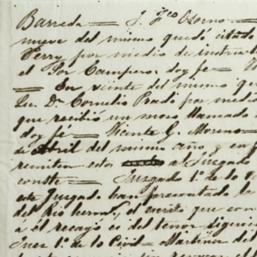 Barreda — J. Fco Osorno —
nueve del mismo quedó citado
Perry por medio de instructi
el Sor Campero; doy fe —
— En veinte del mismo q
Lic. Dn Cornelio Prado por medio
que recibió un moso llamado
doy fe — Vicente G. Moreno —
de Abril del mismo año, y en f
remiten estos al Juzgado
conste — Juzgado 1º de lo
este Juzgado han presentado
del Rio herma, el escrito que con
a el recayó es del tenor siguien
Juez 1º de lo Civil — Martinez del